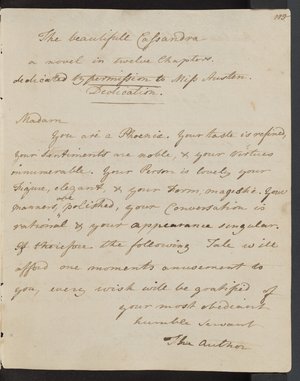 The beautifull Cassandra
a novel in twelve Chapters.
dedicated by permission to Miss Austen.
Dedication.
Madam
You are a Phoenix. Your taste is refined,
your Sentiments are noble, & your Virtues
innumerable. Your Person is lovely, your
Figure, elegant, & your Form, magestic. Your
manners, are polished, your Conversation is
rational & your appearance singular.
If therefore the following Tale will
afford one moment's amusement to
you, every wish will be gratified of
your most obedient
humble servant
The Author